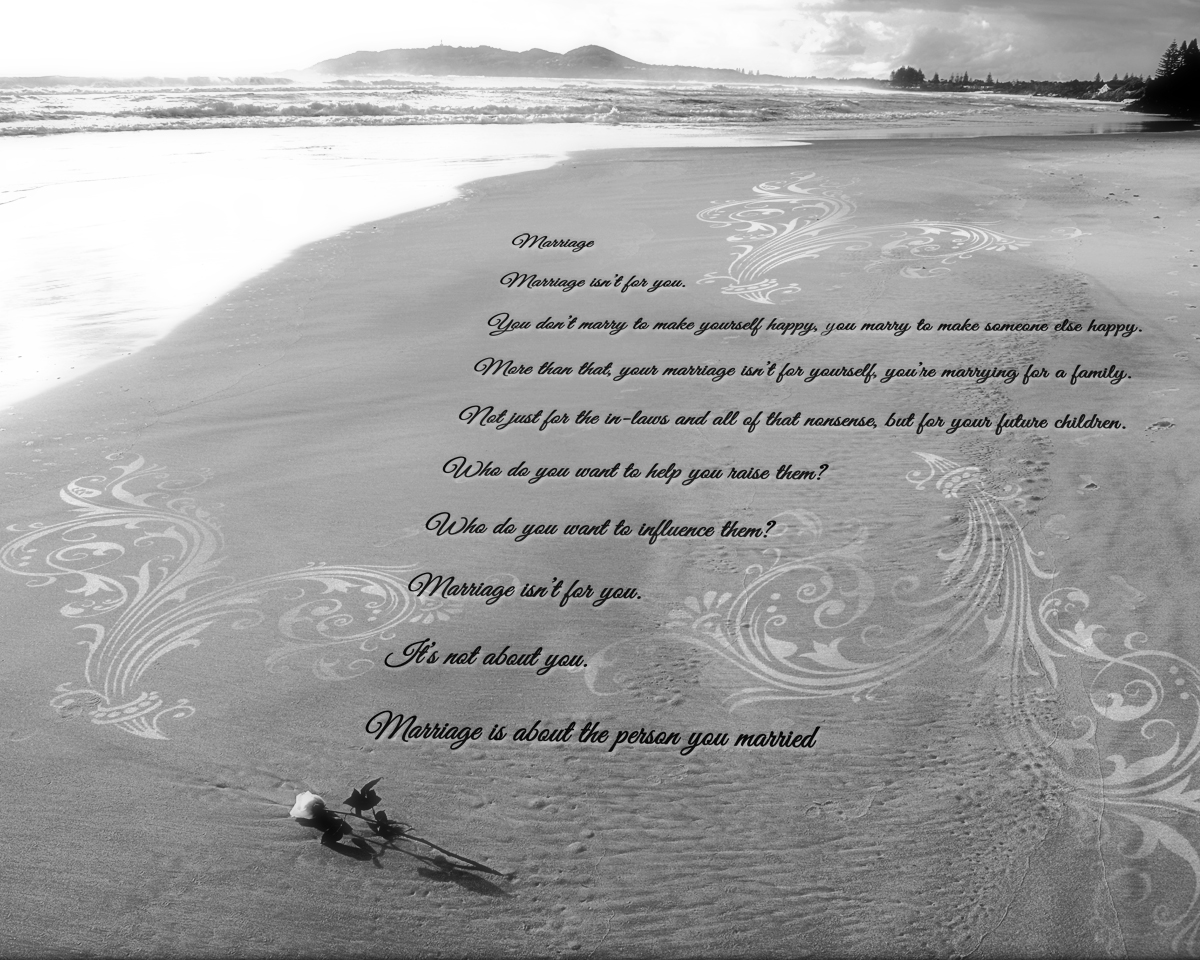 Marriage
Marriage isn't for you.
You don't marry to make yourself happy, you marry to make someone else happy.
More than that, your marriage isn't for yourself, you're marrying for a family.
Not just for the in-laws and all of that nonsense, but for your future children.
Who do you want to help you raise them?
Who do you want to influence them?
Marriage isn't for you.
It's not about you.
Marriage is about the person you married